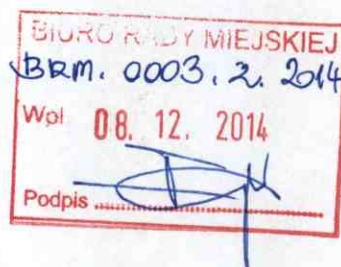 BIURO RADY MIEJSKIEJ
BRM. 0003.2.2014
Wpł 08. 12. 2014
Podpis